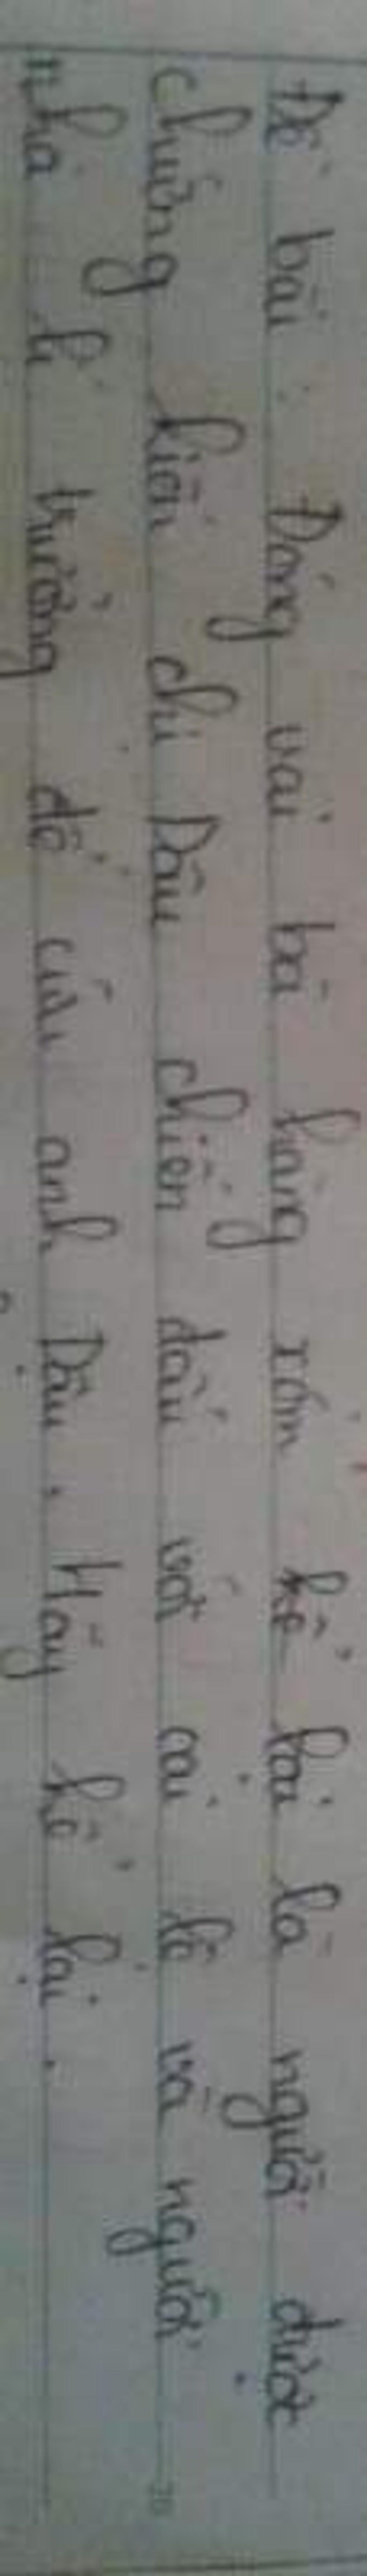 Đề bài : Đóng vai bà hàng xóm kể lại là người được
chứng kiến chị Dậu chiến đấu với cai lệ và người
nhà lí trưởng để cứu anh Dậu. Hãy kể lại.